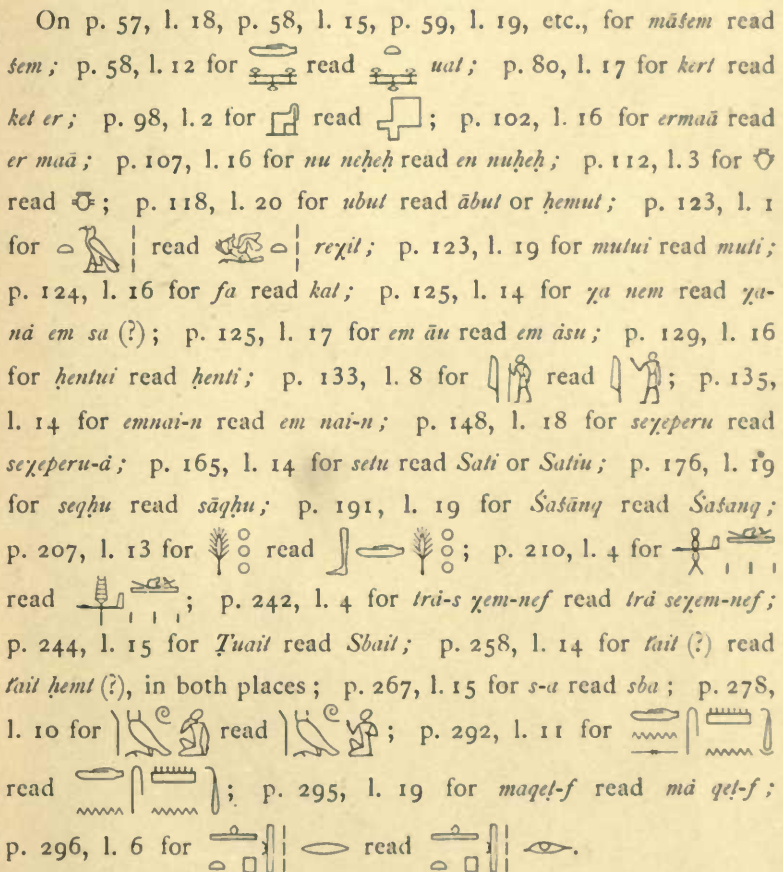 On p. 57, l. 18, p. 58, l. 15, p. 59, l. 19, etc., for māśem read
śem; p. 58, l. 12 for read uat; p. 80, l. 17 for kert read
ket er; p. 98, l. 2 for read ; p. 102, l. 16 for ermaā read
er maā; p. 107, l. 16 for nu neḥeḥ read en nuḥeḥ; p. 112, l. 3 for
read ; p. 118, l. 20 for ubut read ābut or ḥemut; p. 123, l. 1
for read reχit; p. 123, l. 19 for mutui read muti;
p. 124, l. 16 for fa read kat; p. 125, l. 14 for χa nem read χa-
nȧ em sa (?); p. 125, l. 17 for em āu read em ȧsu; p. 129, l. 16
for ḥentui read ḥenti; p. 133, l. 8 for read ; p. 135,
l. 14 for emnai-n read em nai-n; p. 148, l. 18 for seχeperu read
seχeperu-ȧ; p. 165, l. 14 for setu read Sati or Satiu; p. 176, l. 19
for seqḥu read sāqḥu; p. 191, l. 19 for Śaśānq read Śaśanq;
p. 207, l. 13 for read ; p. 210, l. 4 for
read ; p. 242, l. 4 for trȧ-s χem-nef read trȧ seχem-nef;
p. 244, l. 15 for Ṭuait read Sbait; p. 258, l. 14 for t'ait (?) read
t'ait ḥemt (?), in both places; p. 267, l. 15 for s-a read sba; p. 278,
l. 10 for read ; p. 292, l. 11 for
read ; p. 295, l. 19 for maqeṭ-f read mȧ qeṭ-f;
p. 296, l. 6 for read .